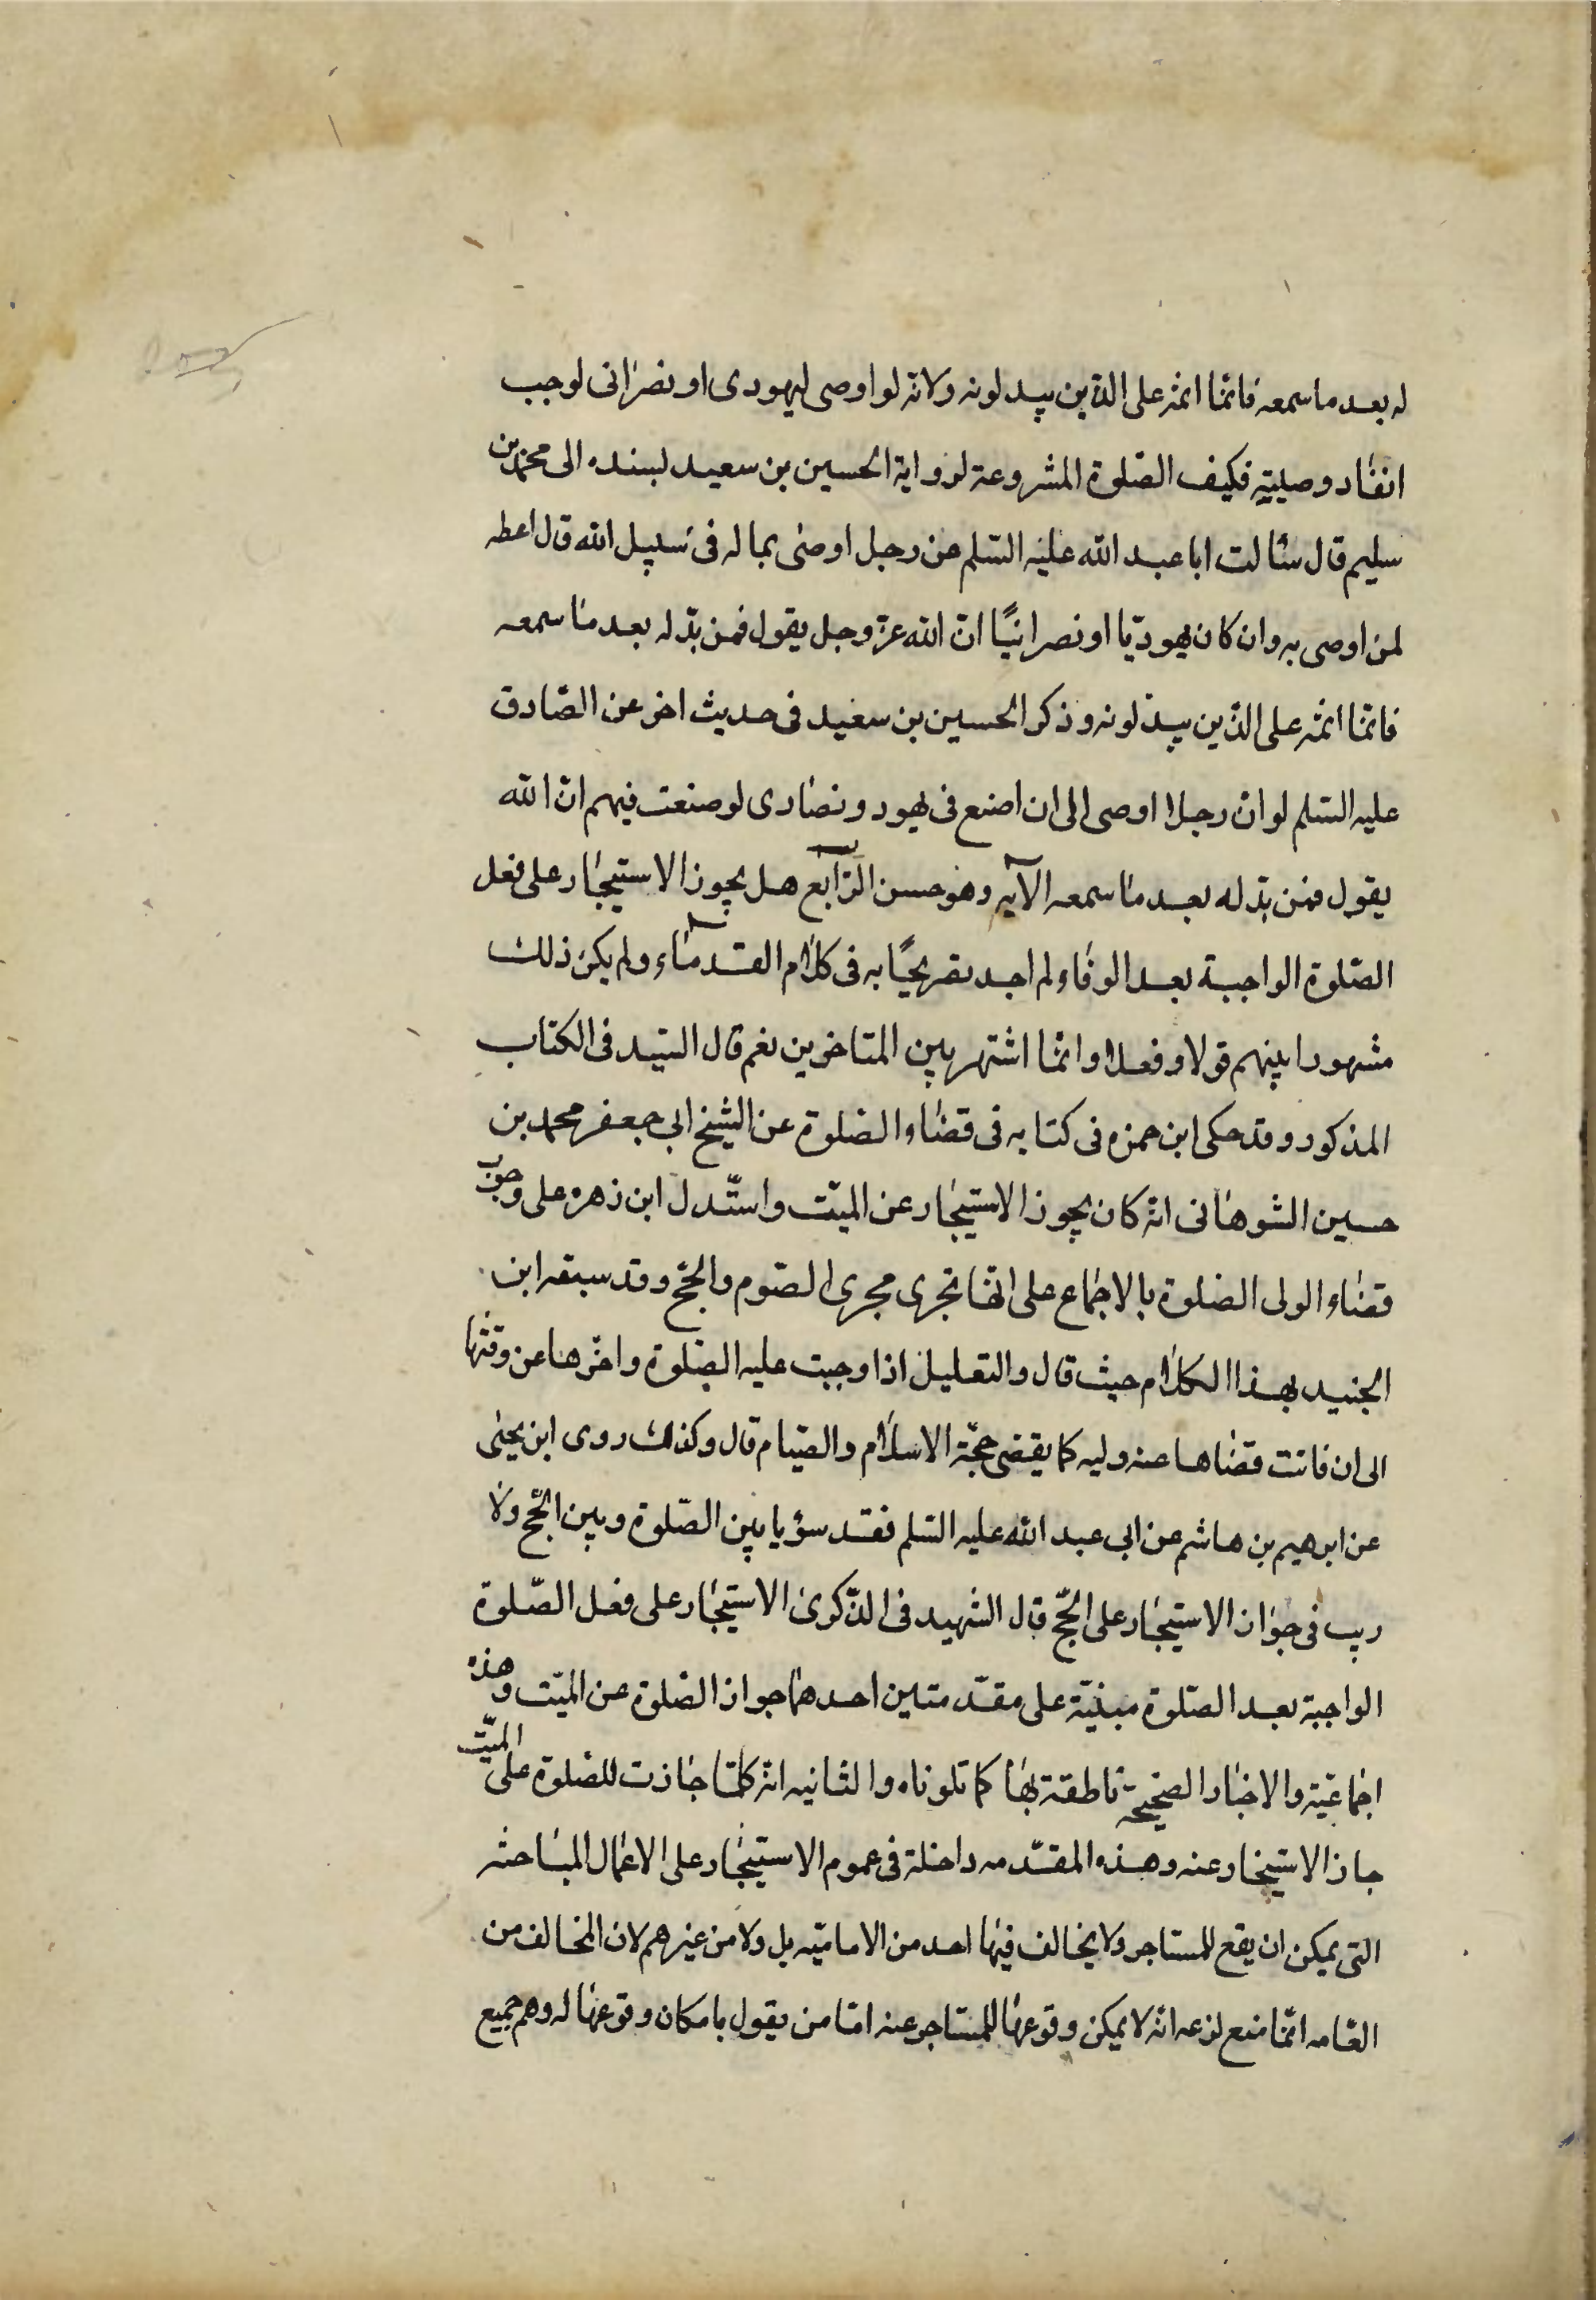 له بعد ما سمعه فانّما اثمه على الذين يبدلونه ولانه لو اوصى ليهودى او نصرانى لوجب
انفاد وصيته فكيف الصّلوة المشروعة لرواية الحسين بن سعيد لسنده الى محمد بن
سليم قال سئالت ابا عبد الله عليه السّلم عن رجل اوصى بماله فى سبيل الله قال اعطه
لمن اوصى به وان كان يهوديّا او نصرانيّا انّ الله عزّ وجل يقول فمن بدّله بعد ما سمعه
فانّما اثمه على الذّين يبدّلونه وذكر الحسين بن سعيد فى حديث اخر عن الصّادق
عليه السّلم لو انّ رجلا اوصى الى ان اضع فى يهود ونصارى لوضعت فيهم انّ الله
يقول فمن بدّله بعد ما سمعه الآيه وهو حسن الرّابع هل يجوز الاستيجار على فعل
الصّلوة الواجبة بعد الوفاء لم اجد تصريحًا به فى كلام القدماء ولم يكن ذلك
مشهورا بينهم قولا وفعلا وانّما اشتهر بين المتاخرين نعم قال السّيد فى الكتاب
المذكور وقد حكى ابن حمزه فى كتابه فى قضاء الصّلوة عن الشّيخ ابى جعفر محمد بن
حسين الشوهانى انه كان يجوز الاستيجار عن الميّت واستّدل ابن زهره على وجوب
قضاء الولى الصّلوة بالاجماع على انها تجرى مجرى الصّوم والحجّ وقد سبقه ابن
الجنيد بهذا الكلام حيث قال والتعليل اذا وجبت عليه الصّلوة واخّرها عن وقتها
الى ان فاتت قضاها عنه وليه كما يقضى حجّة الاسلام والصّيام قال وكذلك روى ابن يحيى
عن ابرهيم بن هاشم عن ابى عبد الله عليه السّلم فقد سؤيا بين الصّلوة وبين الحجّ ولا
ريب فى جواز الاستيجار على الحجّ قال الشّهيد فى الذّكرى الاستيجار على فعل الصّلوة
الواجبة بعد الصّلوة مبنيّة على مقدّمتين احدهما جواز الصّلوة عن الميّت وهذه
اجماعيّة والاخبار الصّحيحة ناطقة بها كما تلوناه والثانيه انه كلّما جازت للصّلوة على الميّت
جاز الاستيجار عنه وهذه المقدّمه داخلة فى عموم الاستيجار على الاعمال المباحثه
التى يمكن ان يقع للمستاجر ولا يخالف فيها احد من الاماميّه بل ولا من غيرهم لان المخالف من
العّامه انّما منع لزعمه انه لا يمكن وقوعها للمستاجر عنه امّا من يقول بامكان وقوعها له وهم جميع